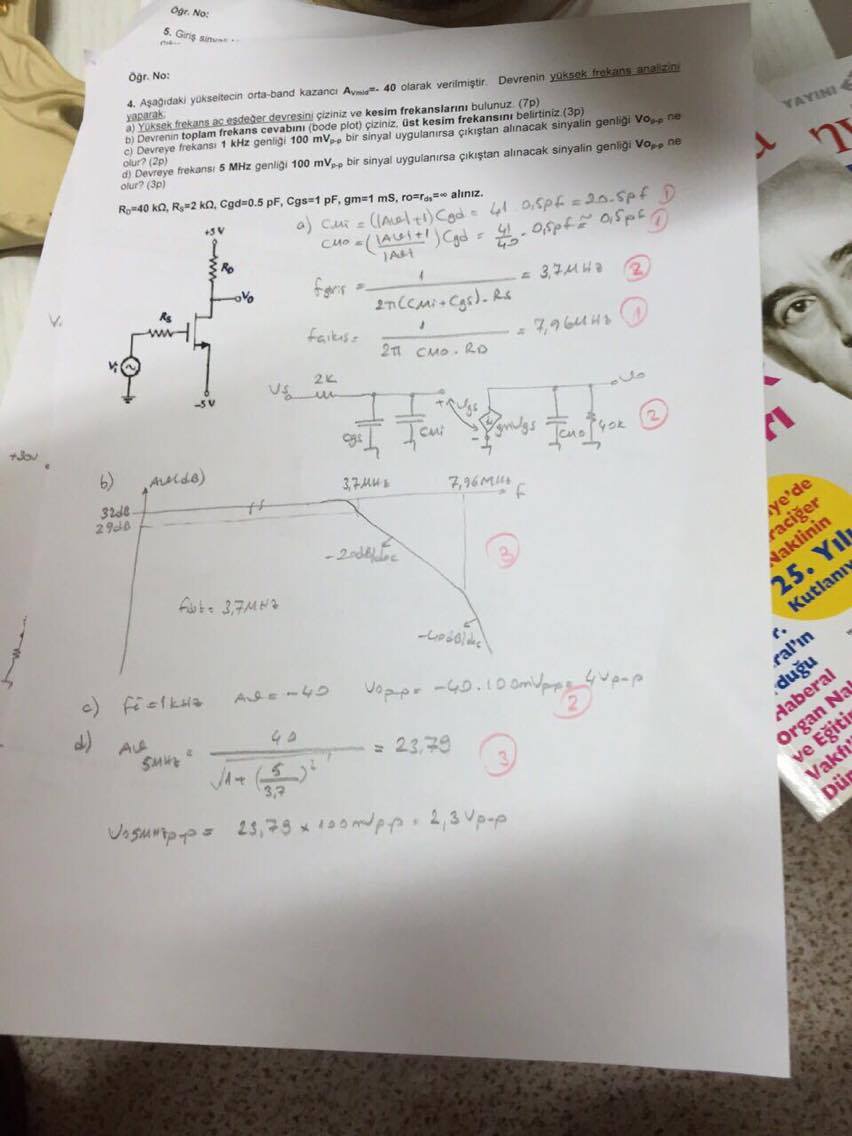 Öğr. No:
5. Giriş
Öğr. No:
4. Aşağıdaki yükseltecin orta-band kazancı Avmid=- 40 olarak verilmiştir. Devrenin yüksek frekans analizini
yaparak;
a) Yüksek frekans ac eşdeğer devresini çiziniz ve kesim frekanslarını bulunuz. (7p)
b) Devrenin toplam frekans cevabını (bode plot) çiziniz, üst kesim frekansını belirtiniz.(3p)
c) Devreye frekansı 1 kHz genliği 100 mVp-p bir sinyal uygulanırsa çıkıştan alınacak sinyalin genliği Vop-p ne
olur? (2p)
d) Devreye frekansı 5 MHz genliği 100 mVp-p bir sinyal uygulanırsa çıkıştan alınacak sinyalin genliği Vop-p ne
olur? (3p)
RD=40 kΩ, RS=2 kΩ, Cgd=0.5 pF, Cgs=1 pF, gm=1 mS, ro=rds=∞ alınız.
a) CMi = (|Av|+1) Cgd = 41 0,5pf = 20.5pf 1
CMO = (|Av|+1 / |Av|) Cgd = 41/40 . 0,5pf ≈ 0,5pf 1
fgiris = 1 / 2π(CMi+Cgs).RS = 3,7MHz 2
fcikis = 1 / 2π CMO.RD = 7,96MHz 1
+5V
RD
Vo
Rs
Vi
-5V
Vs 2K + Vgs - gmVgs Vo
Cgs CMi CMO 40k 2
b) Av(dB) 3,7MHz 7,96MHz F
32dB
29dB
-20dB/dec 3
füst = 3,7MHz
-40dB/dec
c) fi = 1kHz Av = -40 Vop-p = -40.100mVp-p = 4Vp-p 2
d) Av 5MHz = 40 / √1+(5/3,7)² = 23,79 3
Vo5MHzp-p = 23,79 x 100mVp-p = 2,3Vp-p
YAYINI
ye'de
raciğer
Naklinin
25. Yılı
Kutlanıy
r.
ral'ın
duğu
Haberal
Organ Nak
ve Eğitim
Vakfı'
Dün